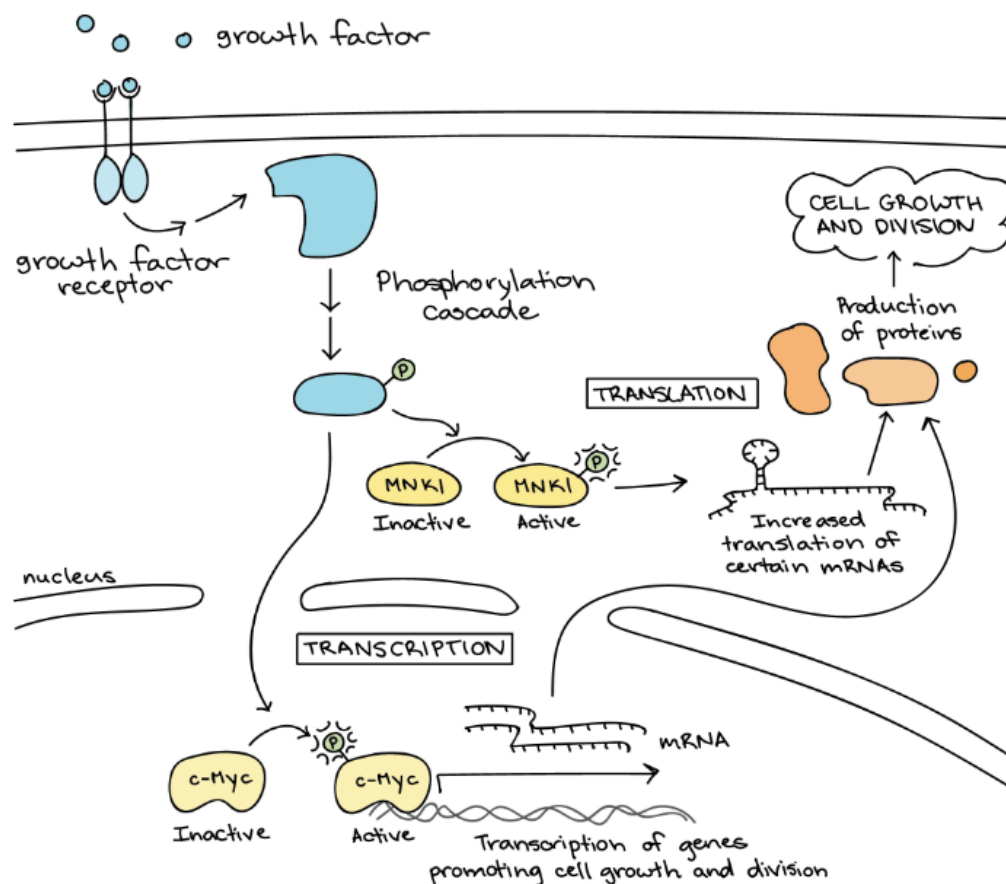 growth factor
growth factor
receptor
Phosphorylation
cascade
CELL GROWTH
AND DIVISION
Production
of proteins
P
TRANSLATION
P
MNK1
MNK1
Inactive
Active
Increased
translation of
certain mRNAs
nucleus
TRANSCRIPTION
mRNA
P
c-Myc
c-Myc
Inactive
Active
Transcription of genes
promoting cell growth and division